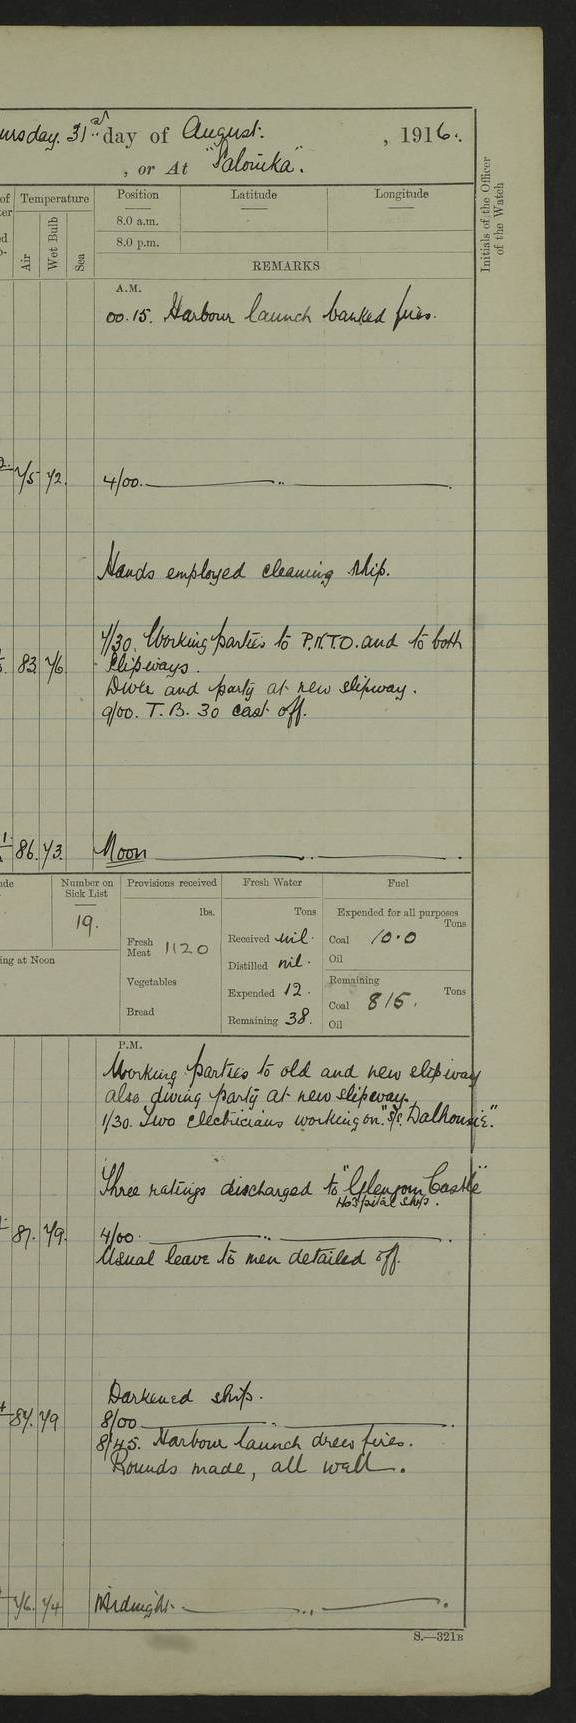 ursday. 31st day of August. , 1916.
, or At "Salonika".
of Temperature Position Latitude Longitude
Air Wet Bulb Sea
8.0 a.m.
8.0 p.m.
Initials of the Officer
of the Watch
REMARKS
A.M.
00.15. Harbour launch banked fires.
75 72. 4/00. ———— " ————.
Hands employed cleaning ship.
7/30. Working parties to P.N.T.O. and to both
83 76 slipways.
Diver and party at new slipway.
9/00. T. B. 30 cast off.
86. 73. Noon ———— " ————.
Number on Provisions received Fresh Water Fuel
Sick List
19.
lbs. Tons Expended for all purposes
Tons
Fresh Meat 1120 Received nil. Coal 10.0
Distilled nil. Oil
ing at Noon
Vegetables Expended 12. Remaining
Coal 815. Tons
Bread Remaining 38. Oil
P.M.
Working parties to old and new slipway
also diving party at new slipway.
1/30. Two electricians working on "S/S. Dalhousie."
Three ratings discharged to "Glengorm Castle"
Hospital Ship.
87. 79. 4/00. ———— " ————.
Usual leave to men detailed off.
Darkened ship.
84. 79 8/00 ———— " ————.
8/45. Harbour launch drew fires.
Rounds made, all well.
76. 74 Midnight. ———— " ————.
S.—321B